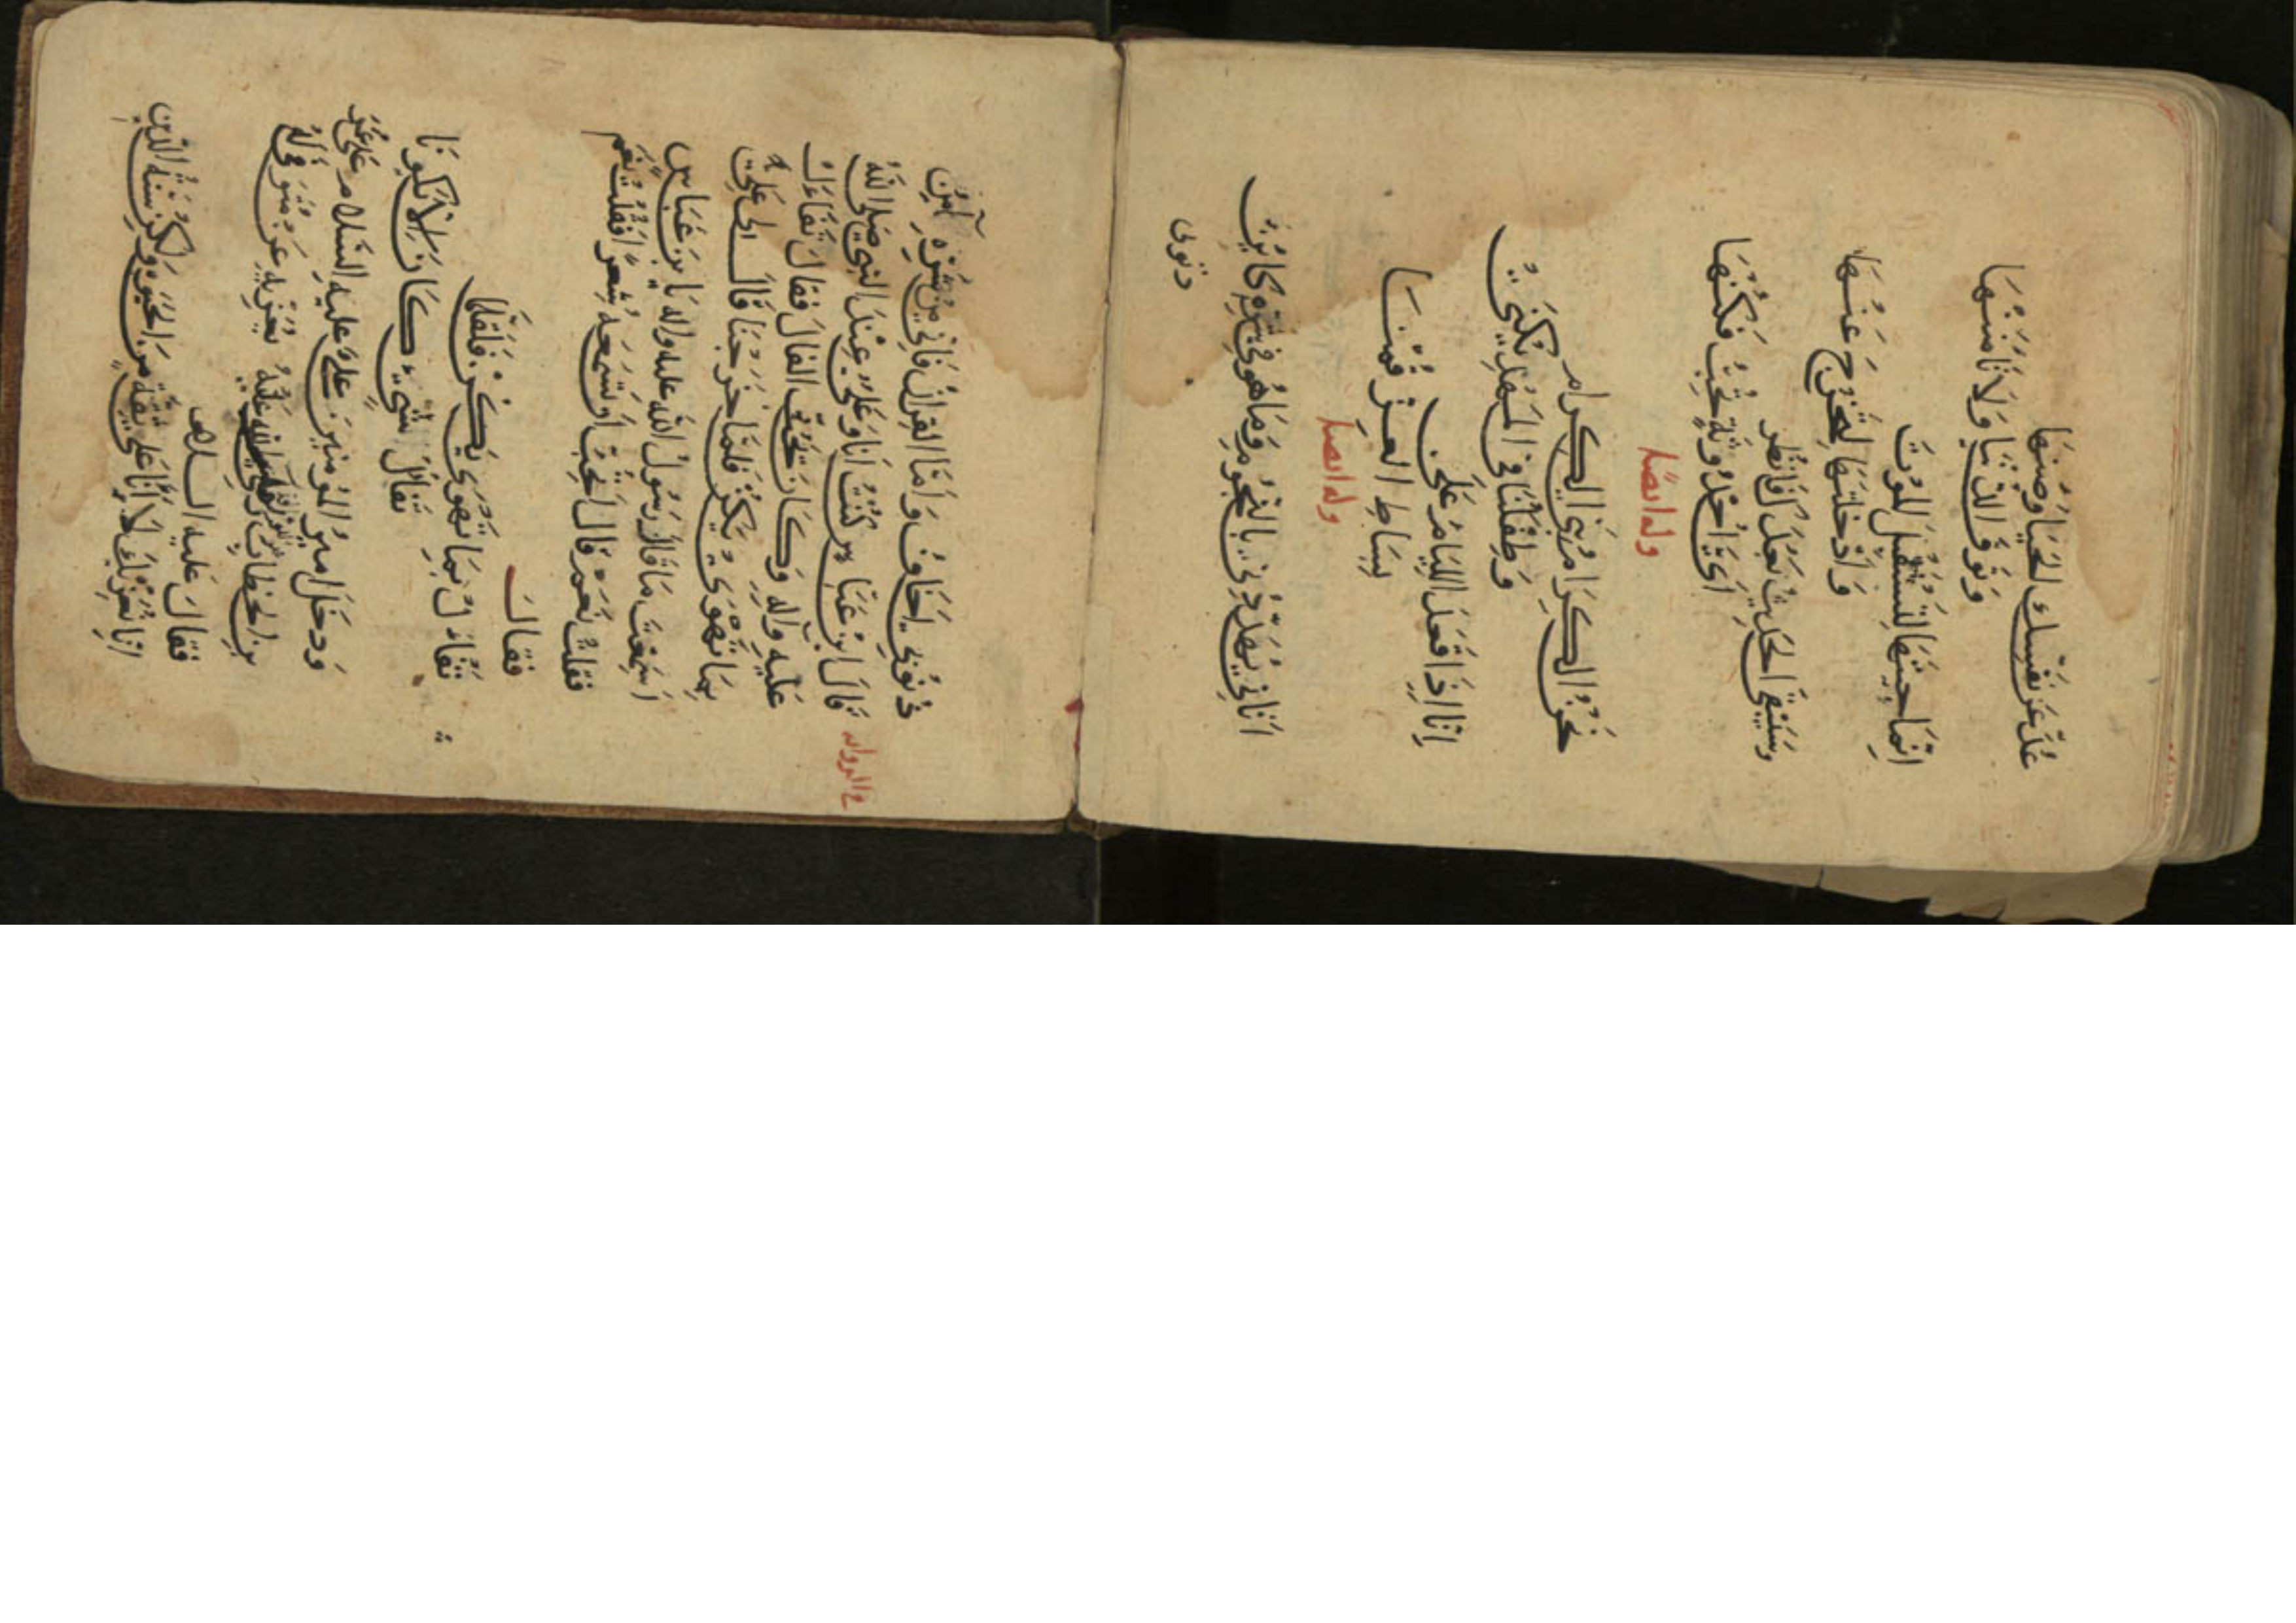 عُدَّ عَنْ نَفْسِكَ الحَيَا وَصُنْهَا
وَتَوَقَّ الدُّنْيَا وَلَا تَأْمَنْهَا
اِنَّمَا جِئْتَهَا لِتَسْتَقْبِلَ المَوْتَ
وَاُدْخِلْتَهَا لِتَخْرُجَ عَنْهَا
وَسَيَبْقَى الحَدِيثُ بَعْدَكَ فَانْظُر
اَيَّ اُحْدُوثَةٍ تُحِبُّ فَكُنْهَا
وله ايضا
نَحْنُ الكِرَامُ بَنِي الكِرَام
وَطِفْلُنَا فِي المَهْدِ يُكْنَى
اِنَّا اِذَا قَعَدَ اللِئَامُ عَلَى
بِسَاطِ العِزِّ قُمْنَا
وله ايضا
اَتَانِي يُهَدِّدُنِي بِالنُّجُومِ وَمَا هُوَ فِي شَرِّهِ كَائِنٌ
ذنوبى
ذُنُوبِي اَخَافُ وَاَمَّا القِرَانُ فَاِنِّي مِنْ شَرِّهِ آمِنٌ
في الروايه
قَالَ ابن عَبَّاس كُنْتُ اَنَا وَعَلِيٌّ عِنْدَ النبي صلى الله
عَلَيْهِ واله وَكَانَ الفال فقال تَفَاءَلْ
بِمَا تَهْوَى يَكُنْ فَلَمَّا خَرَجْنَا قَالَ لِي عَلِيٌّ
اَسَمِعْتَ مَا قَالَ رَسُولُ اللَّه عليه واله يَا بن عَبَّاس
فقلتُ نَعَم قَالَ اَتُحِبُّ ان تسمعه شعرا فقلتُ نعم
فَقَالَ
تَفَاءَلْ بِمَا تَهْوَى يَكُنْ فَلَقَلَّمَا
يُقَالُ لِشَيْءٍ كَانَ اِلَّا تَكُونَا
وَدَخَلَ اميرُ المؤمنين عَلِيٌّ عليه السلام على عُمَرَ
بن الخطاب رضي الله عنه يُعَزِّيهِ عن متوفى لَهُ
فَقَالَ عَلَيه السلام
اِنَّا نُعَزِّيكَ لَا اَنَّا عَلَى ثِقَةٍ مِنَ الحَيوةِ وَلَكِنْ سُنَّةُ الدِّينِ